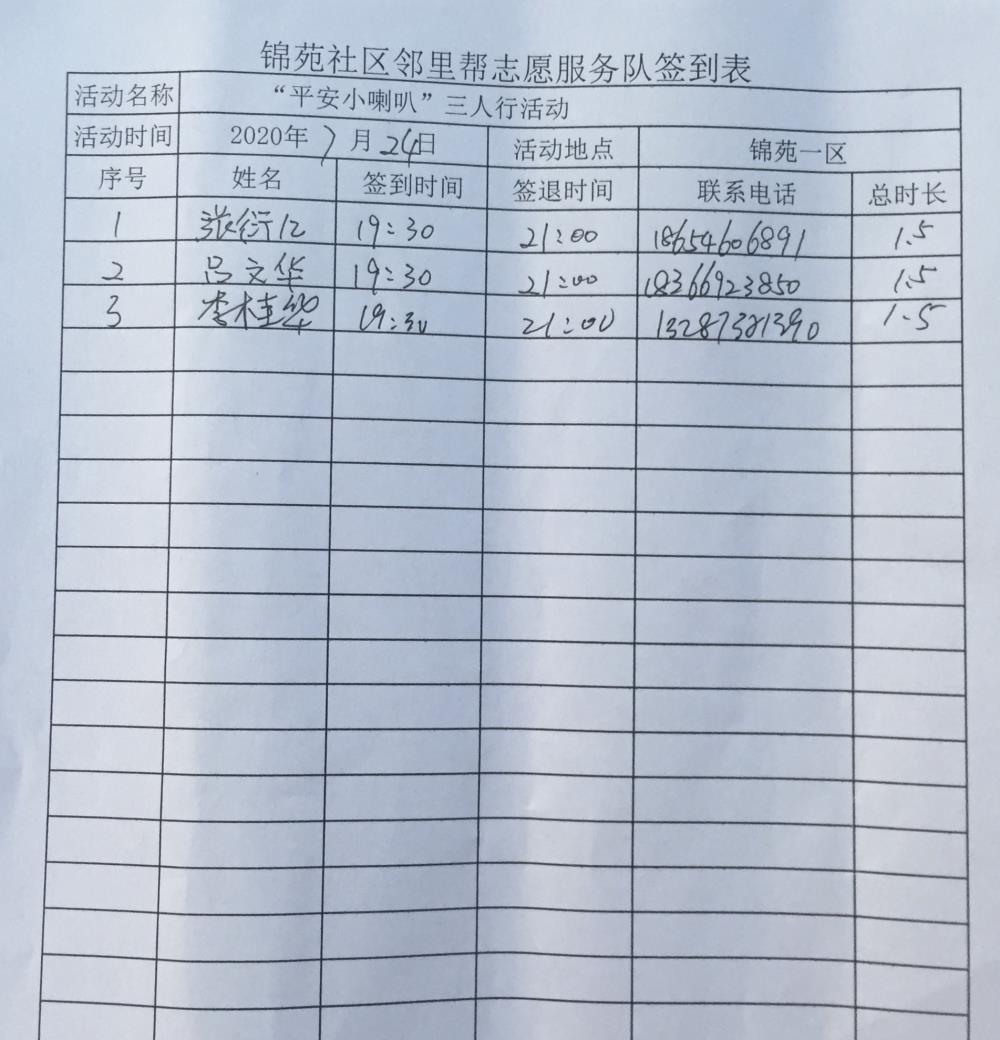 锦苑社区邻里帮志愿服务队签到表
活动名称 “平安小喇叭”三人行活动
活动时间 2020年7月24日 活动地点 锦苑一区
序号 姓名 签到时间 签退时间 联系电话 总时长
1 张衍仁 19:30 21:00 18654606891 1.5
2 吕文华 19:30 21:00 18366923850 1.5
3 李桂华 19:30 21:00 13287321390 1.5